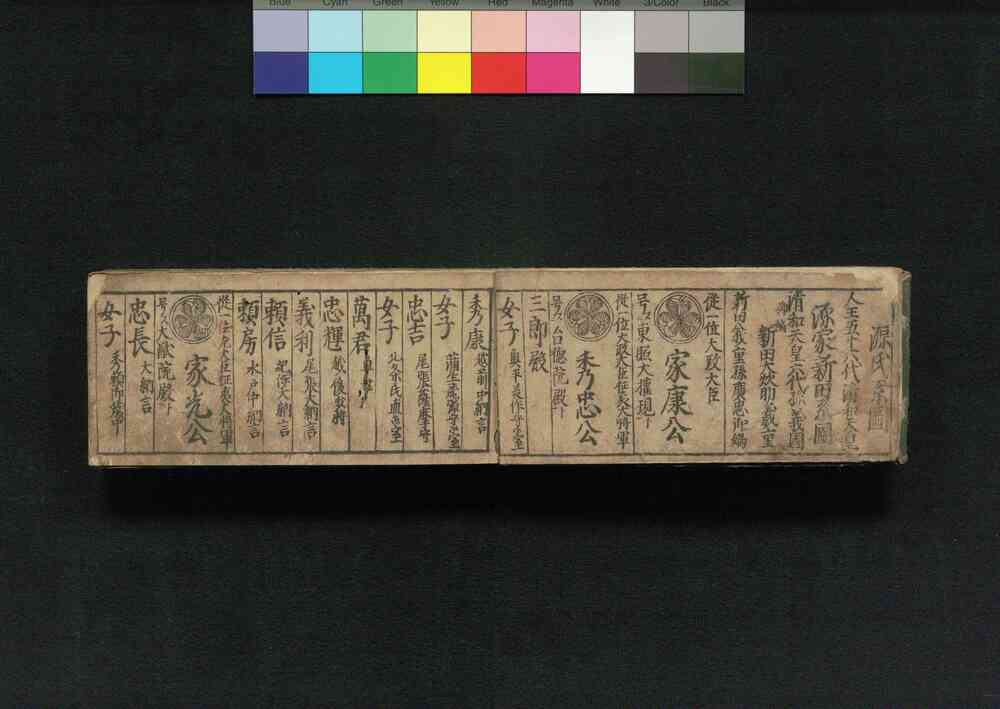 Blue Cyan Green Yellow Red Magenta White 3/Color Black
源氏
人王五十六代清和天皇
源家新田系圖
清和天皇六代
新田大炊助義重
從一位太政大臣
家康公
号ス東照大權現ト
從一位太政大臣征夷大将軍
秀忠公
号ス台徳院殿ト
三郎殿
女子 奥平美作守室
秀康 越前中納言
女子 蒲生飛騨守室
忠吉 尾張薩摩守
女子 北条氏直室
萬君
忠輝 越後少将
義利 尾張大納言
頼信 紀伊大納言
頼房 水戸中納言
從一位左大臣征夷大将軍
家光公
号ス大猷院殿ト
忠長 大納言
女子